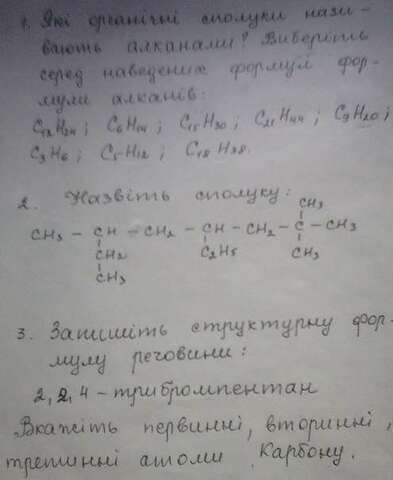 1. Які органічні сполуки нази-
вають алканами? Виберіть
серед наведених формул фор-
мули алканів:
C₁₂H₂₄; C₆H₁₄; C₁₅H₃₀; C₂₁H₄₄; C₉H₂₀;
C₃H₆; C₅H₁₂; C₁₈H₃₈.
2. Назвіть сполуку:
CH₃
CH₃ – CH – CH₂ – CH – CH₂ – C – CH₃
CH₂ C₂H₅ CH₃
CH₃
3. Запишіть структурну фор-
мулу речовини:
2,2,4 – трибромпентан
Вкажіть первинні, вторинні,
третинні атоми Карбону.